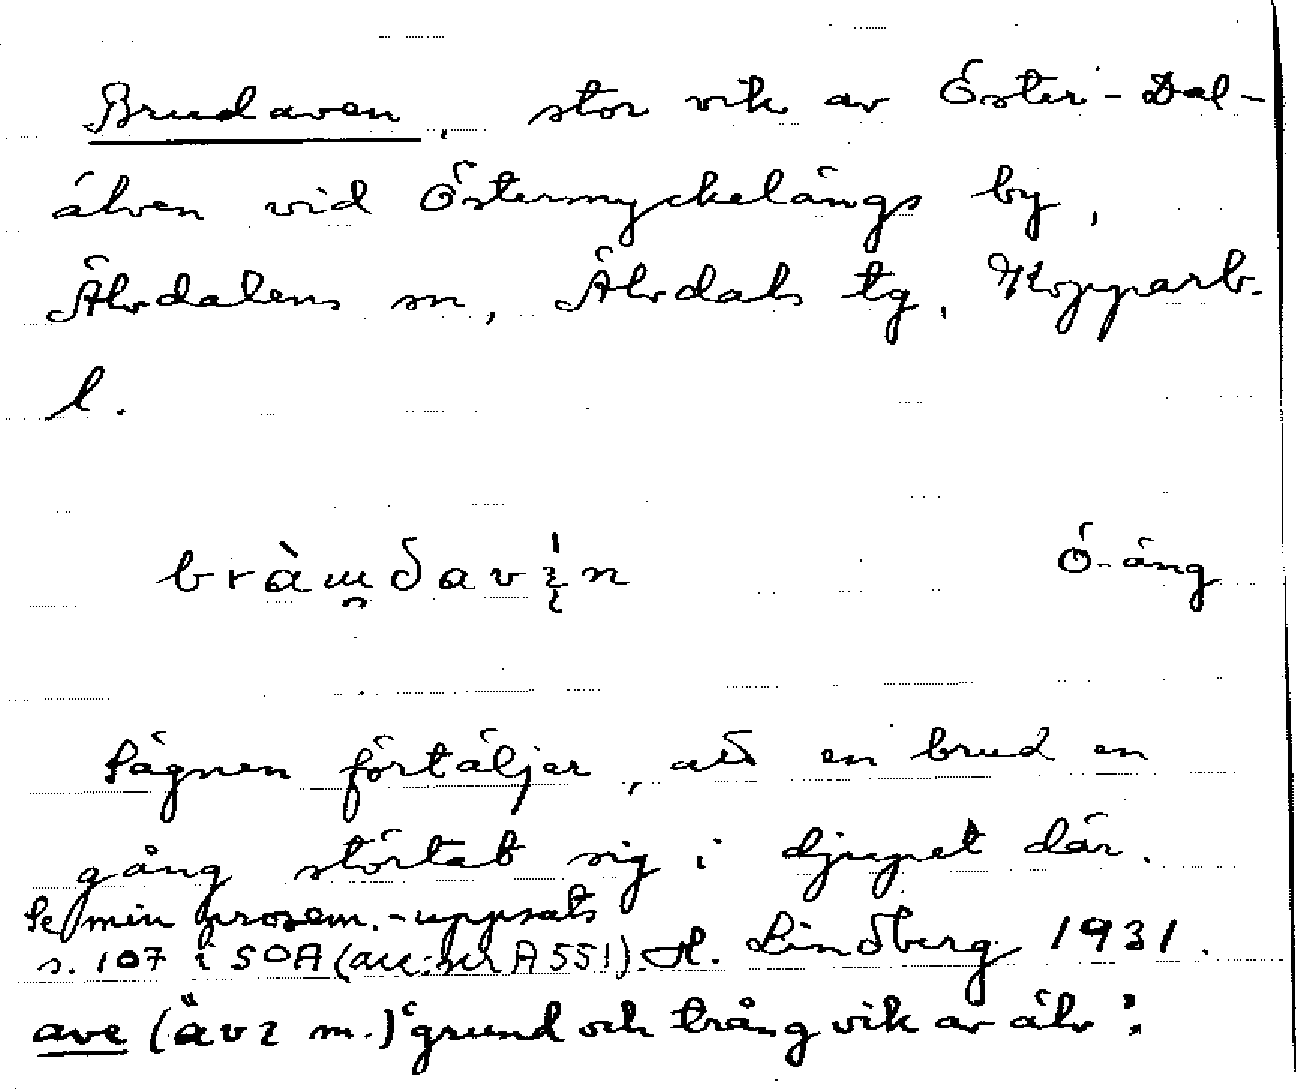 Brudaven, stor vik av Öster-Dal-
älven vid Östermyckelängs by,
Älvdalens sn, Älvdals tg, Kopparb.
l.
Ö-äng
Sägnen förtäljer, att en brud en
gång störtat sig i djupet där.
Se min prosem.-uppsats
s. 107 i SOA (acc:nr A551). H. Lindberg 1931.
ave (m.) 'grund och trång vik av älv'.